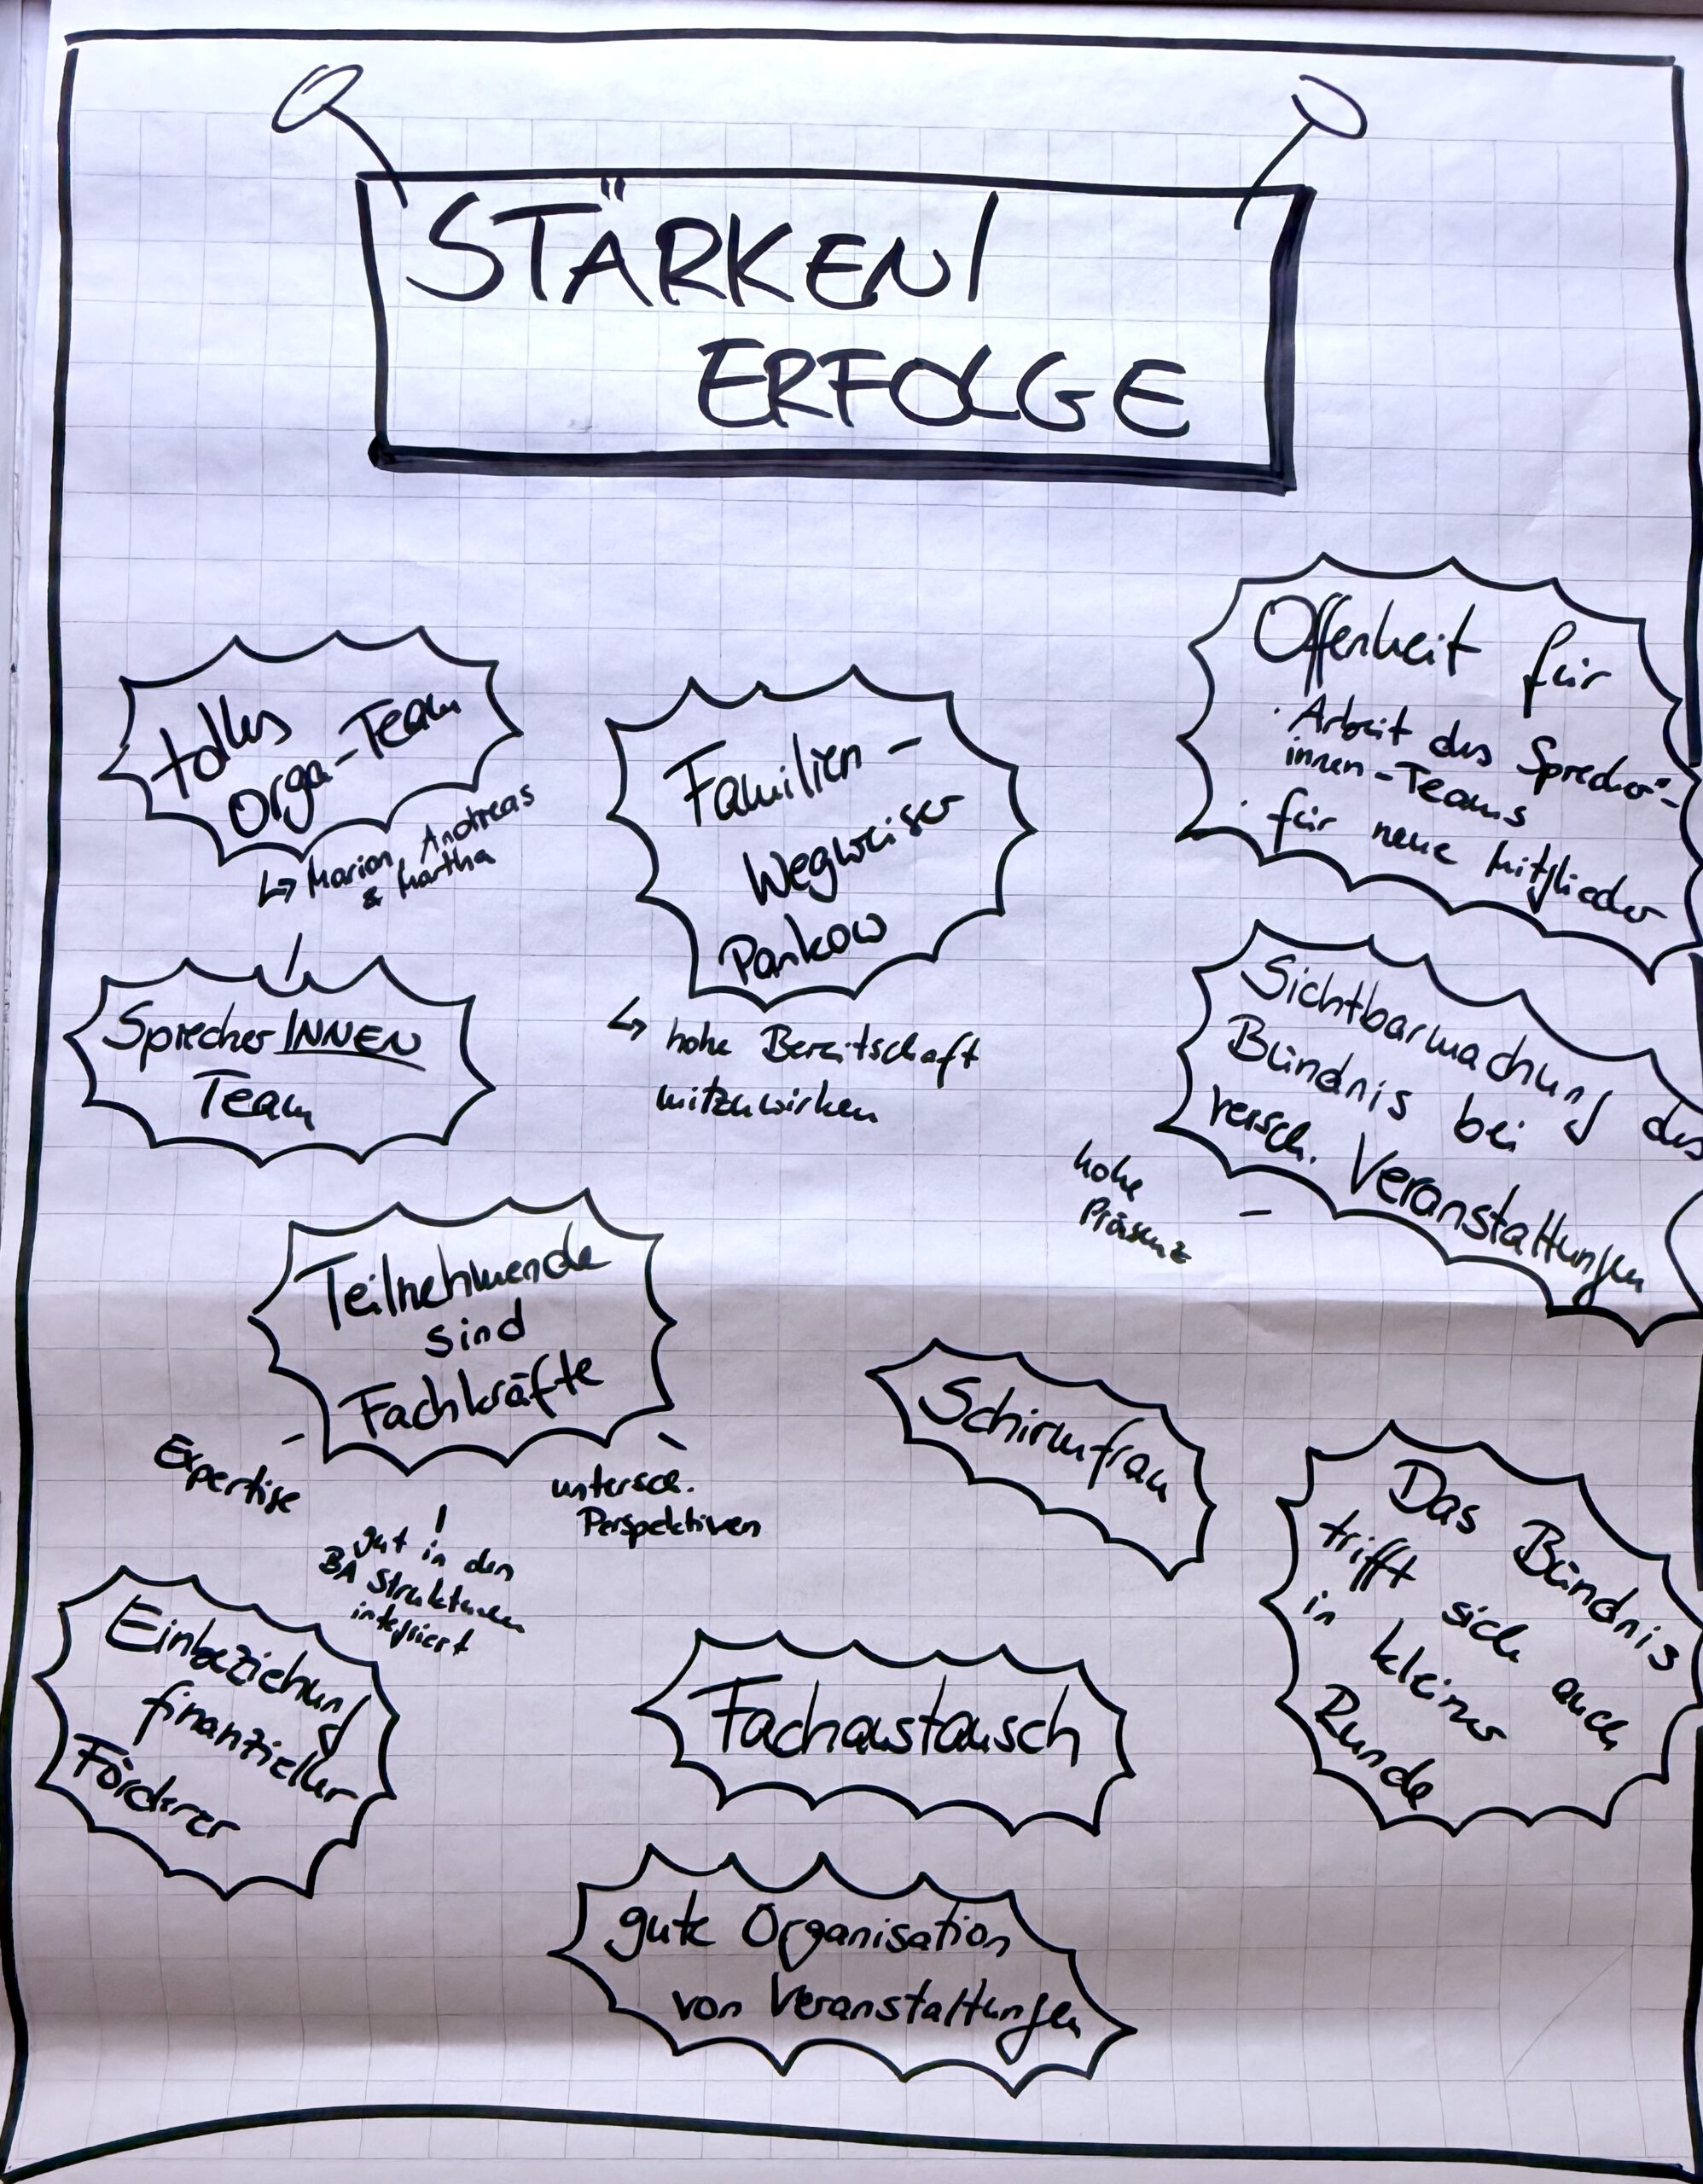 STÄRKEN/
ERFOLGE
tolles
Orga-Team
↳ Marion, Andreas
& Martha
SprecherINNEN
Team
Familien-
Wegweiser
Pankow
↳ hohe Bereitschaft
mitzuwirken
Offenheit für
· Arbeit des Sprecher*-
innen-Teams
· für neue Mitglieder
Sichtbarmachung des
Bündnis bei
versch. Veranstaltungen
hohe
Präsenz
Teilnehmende
sind
Fachkräfte
Expertise
untersch.
Perspektiven
gut in den
BA Strukturen
integriert
Schirmfrau
Das Bündnis
trifft sich auch
in kleiner
Runde
Einbeziehung
finanzieller
Förderer
Fachaustausch
gute Organisation
von Veranstaltungen